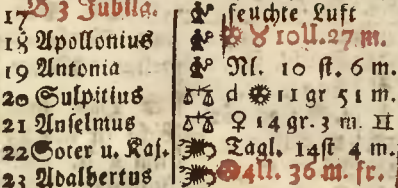 17 D 3 Jubila. feuchte Luft
18 Apollonius ☼ ♉ 10U.27 m.
19 Antonia Nl. 10 ſt. 6 m.
20 Sulpitius d ☼ 11 gr 51 m.
21 Anſelmus ♀ 14 gr. 3 m. ♊
22 Soter u. Kaj. Tagl. 14ſt 4 m.
23 Adalbertus 4U. 36 m. fr.